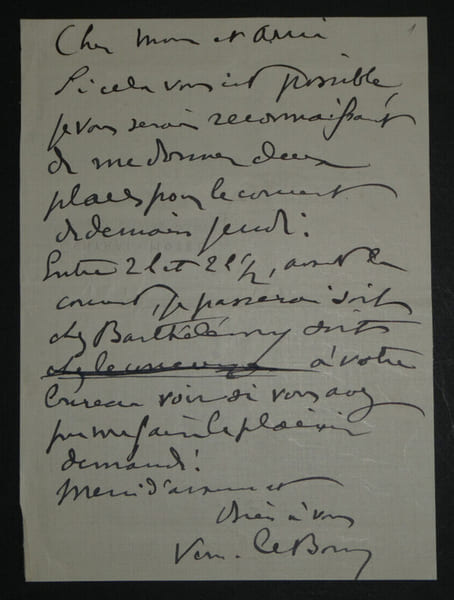 1
Cher Monsieur et Ami
Si cela vous est possible,
je vous serais reconnaissant
de me donner deux
places pour le concert
de demain jeudi:
Entre 2h et 2h ½, avant le
concert, je passerai soit
chez Barthélémy soit
à votre
bureau voir si vous avez
pu me faire le plaisir
demandé!
Merci d'avance et
bien à vous